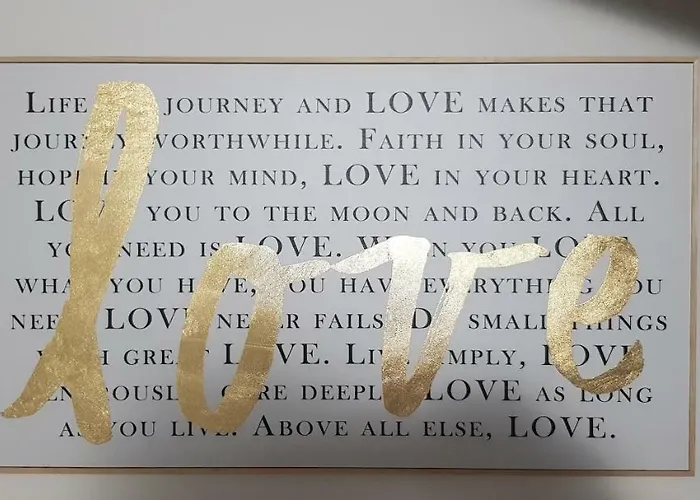 LIFE JOURNEY AND LOVE MAKES THAT
JOURNEY WORTHWHILE. FAITH IN YOUR SOUL,
HOPE YOUR MIND, LOVE IN YOUR HEART.
LOVE YOU TO THE MOON AND BACK. ALL
YOU NEED IS LOVE. WHEN YOU LOVE
WHAT YOU HAVE, YOU HAVE EVERYTHING YOU
NEED LOVE NEVER FAILS. DO SMALL THINGS
WITH GREAT LOVE. LIVE SIMPLY, LOVE
GENEROUSLY CARE DEEPLY LOVE AS LONG
AS YOU LIVE. ABOVE ALL ELSE, LOVE.
love